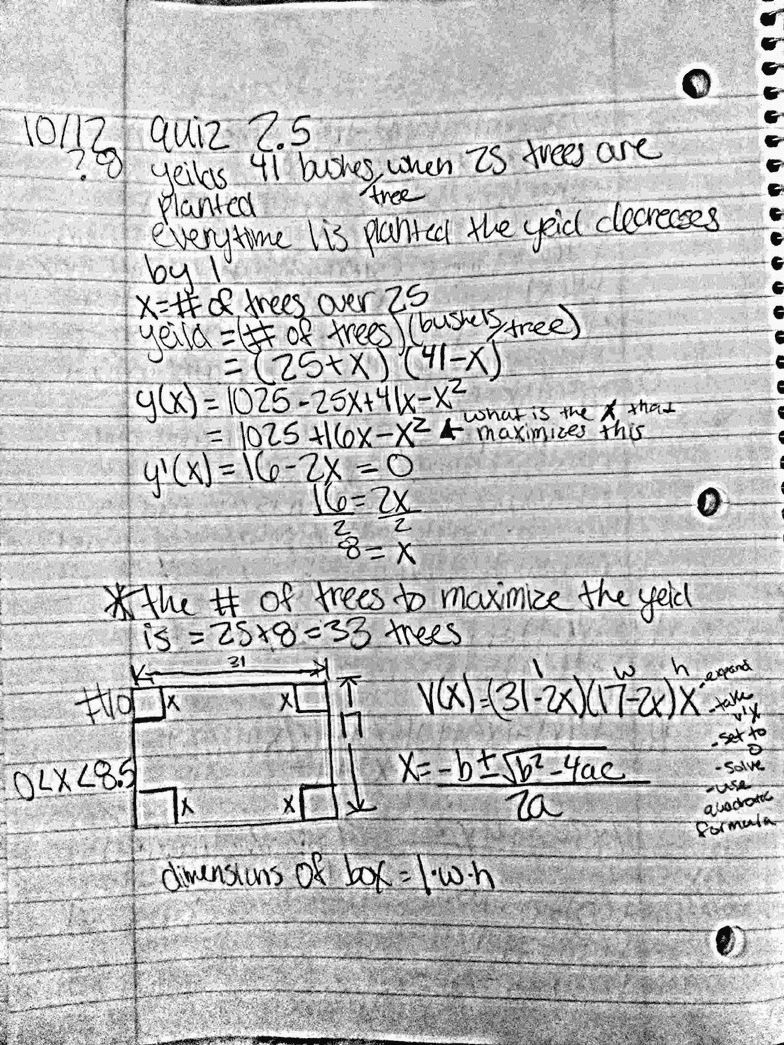 10/12 quiz 2.5
? 8 yeilds 41 bushes/tree when 25 trees are
planted
everytime 1 is planted the yeid decreases
by 1
x=# of trees over 25
yeild = (# of trees)(bushels/tree)
= (25+x) (41-x)
y(x) = 1025 -25x+41x-x²
= 1025 +16x-x² ← what is the x that
maximizes this
y'(x) = 16-2x = 0
16=2x
2 2
8 = x
* the # of trees to maximize the yeid
is = 25+8=33 trees
31
#10 x x 17
l w h
V(x)=(31-2x)(17-2x)x
-expand
-take
v'x
-set to
0
-solve
-use
quadratic
formula
0<x<8.5
x x
x = -b±√b²-4ac
2a
dimensions of box = l·w·h